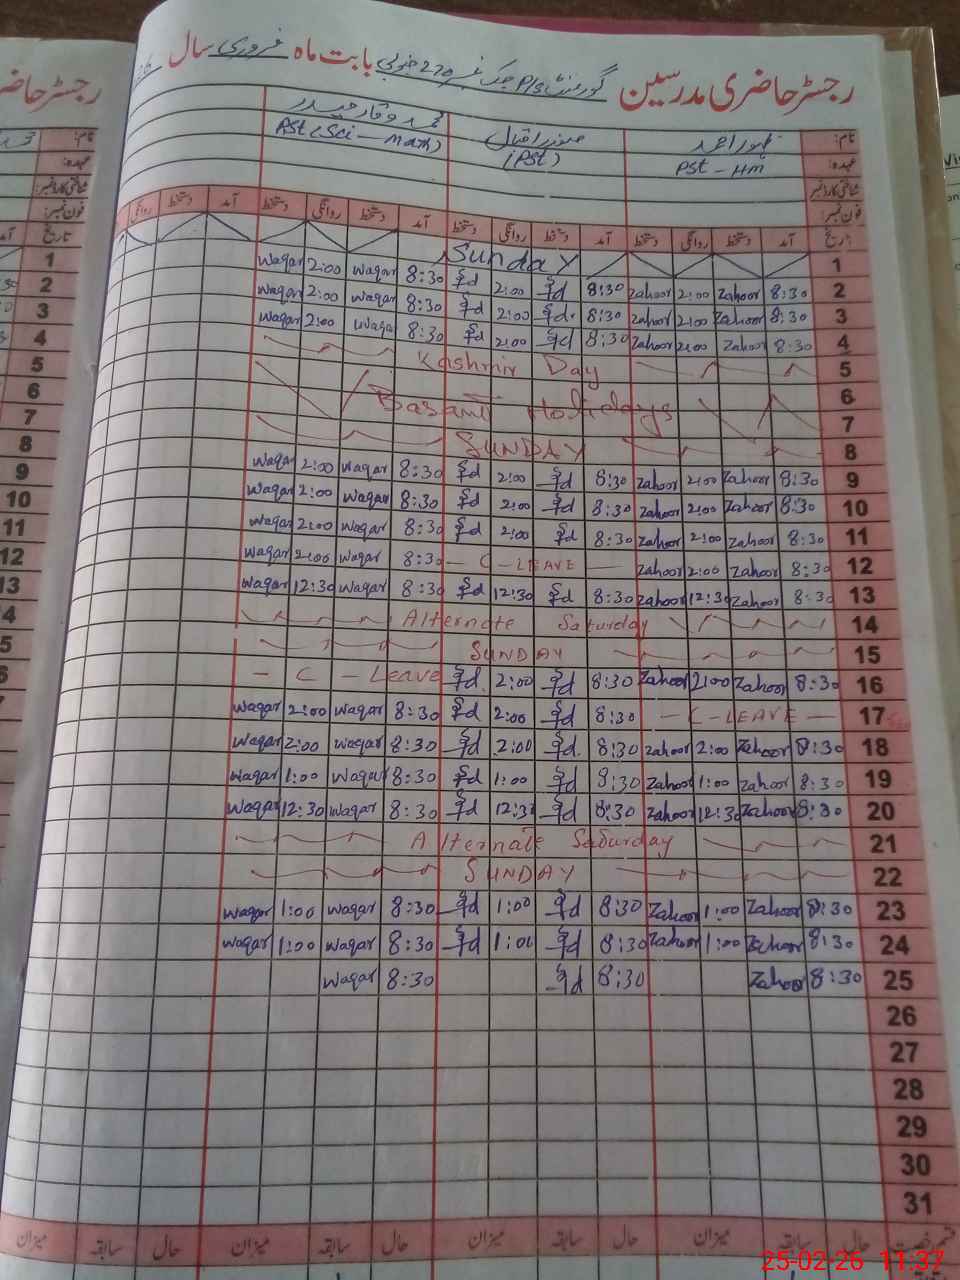 رجسٹر حاضری مدرسین گورنمنٹ P/S چک نمبر 270 جنوبی بابت ماہ فروری سال
نام: ظہور احمد صفدر اقبال محمد وقار حیدر
عہدہ: PST - HM (PST) PST (Sci - Math)
شناختی کارڈ نمبر:
فون نمبر:
تاریخ آمد دستخط روانگی دستخط آمد دستخط روانگی دستخط آمد دستخط روانگی دستخط آمد دستخط روانگی
1 Sunday
Waqar 2:00 Waqar 8:30 2:00 8:30 Zahoor 2:00 Zahoor 8:30 2
Waqar 2:00 Waqar 8:30 2:00 8:30 Zahoor 2:00 Zahoor 8:30 3
Waqar 2:00 Waqar 8:30 2:00 8:30 Zahoor 2:00 Zahoor 8:30 4
Kashmir Day 5
6
Basant Holidays 7
SUNDAY 8
Waqar 2:00 Waqar 8:30 2:00 8:30 Zahoor 2:00 Zahoor 8:30 9
Waqar 2:00 Waqar 8:30 2:00 8:30 Zahoor 2:00 Zahoor 8:30 10
Waqar 2:00 Waqar 8:30 2:00 8:30 Zahoor 2:00 Zahoor 8:30 11
Waqar 2:00 Waqar 8:30 — C - LEAVE — Zahoor 2:00 Zahoor 8:30 12
Waqar 12:30 Waqar 8:30 12:30 8:30 Zahoor 12:30 Zahoor 8:30 13
Alternate Saturday 14
SUNDAY 15
- C - Leave 2:00 8:30 Zahoor 2:00 Zahoor 8:30 16
Waqar 2:00 Waqar 8:30 2:00 8:30 — C - LEAVE — 17
Waqar 2:00 Waqar 8:30 2:00 8:30 Zahoor 2:00 Zahoor 8:30 18
Waqar 1:00 Waqar 8:30 1:00 8:30 Zahoor 1:00 Zahoor 8:30 19
Waqar 12:30 Waqar 8:30 12:30 8:30 Zahoor 12:30 Zahoor 8:30 20
Alternate Saturday 21
SUNDAY 22
Waqar 1:00 Waqar 8:30 1:00 8:30 Zahoor 1:00 Zahoor 8:30 23
Waqar 1:00 Waqar 8:30 1:00 8:30 Zahoor 1:00 Zahoor 8:30 24
Waqar 8:30 8:30 Zahoor 8:30 25
26
27
28
29
30
31
قسم رخصت حال سابقہ میزان حال سابقہ میزان حال سابقہ میزان حال سابقہ میزان
25-02-26 11:37